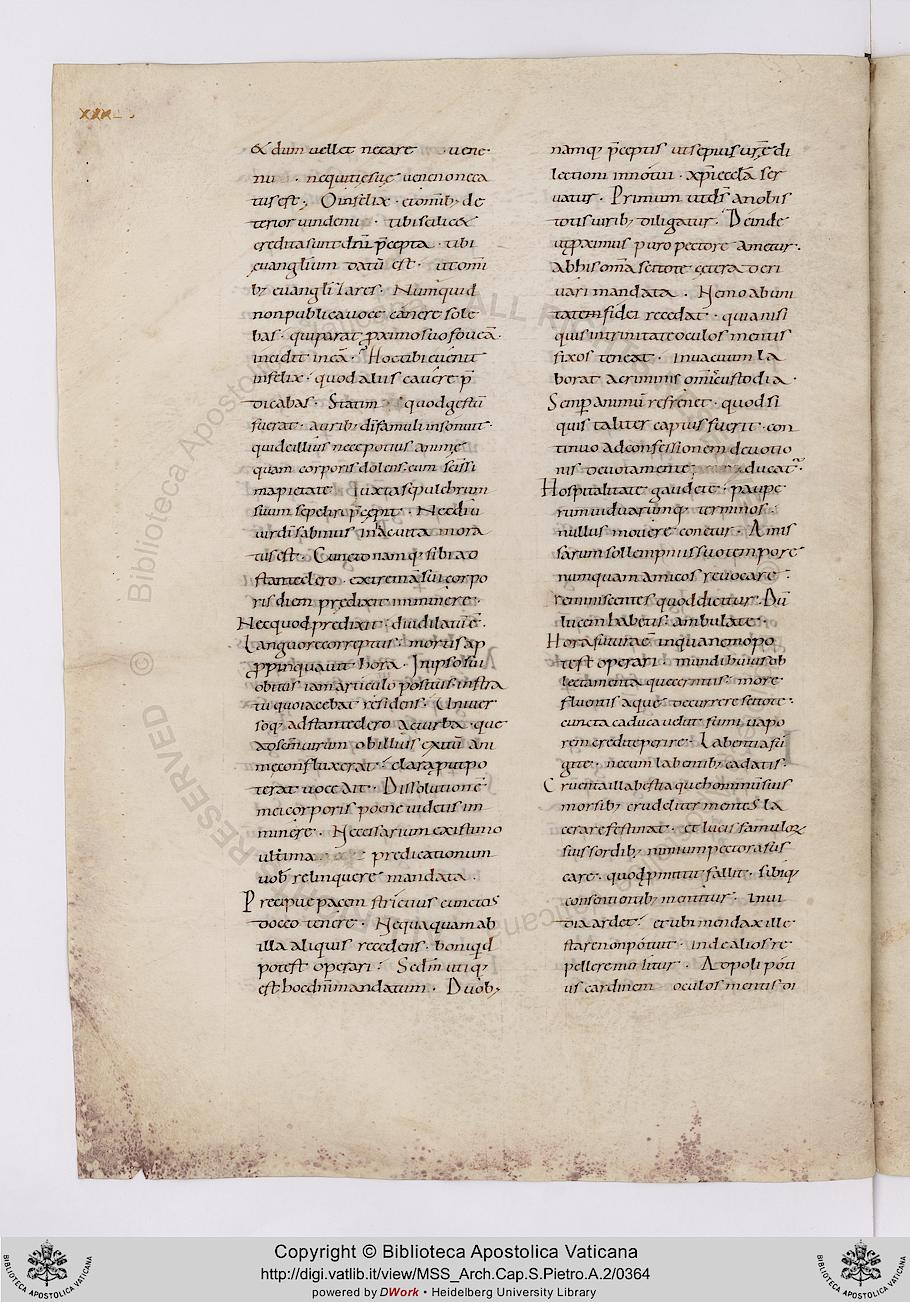 xxx
& dum uellet necare uene
nu · nequitiesue ueneno neca
tus est · O infelix · et omnib; de
terior uindemi · tibi scilic&
credita sunt dn̄i p̄cepta · tibi
euanglium datū est · ut omi
b; euanglilares · Numquid
non publica uoce canere sole
bas · qui parat p̱ximo suo foueā ·
incidit in eā · Hoc tibi euenit
infelix · quod aliis cauere p̄
dicabas · Statim quod gestū
fuerat · aurib; di famuli insonuit ·
qui de illius nece potius anime
quam corporis dolens · eum scissi
ma pietate Iuxta sepulchrum
suum sepeliri p̄cepit · Nec diu
uir di sabinus in hac uita mora
tus est · Cuncto namq; sibi ad
stante clero · extrema sui corpo
ris diem predixit imminere ·
Nec quod predixit · diu dilatū ē ·
Languore correptus · mortis ap
p̱pinquauit hora · In ipso sui
obitus iam articulo positus · in stra
tu quo iacebat residens · Uniuer
soq; adstante clero ac turba · que
ad sc̄m uirum ob illius exitū ani
me confluxerat · clara p̱ ut po
terat uoce ait · Dissolutionē
mei corporis poene uidetis im
minere · Necesarium existimo
ultima predicationum
uob̄ relinquere mandata ·
Precipue pacem strictius cunctos
doceo tenere · Nequaquam ab
illa aliquis recedens · boni qd
potest operari · Sed m̄ utiq;
est hoc dn̄i mandatum · Duob;
namq; p̄ceptis ut sepius ur̄e di
lectioni innotui · xp̄i eccl̄a ser
uatur · Primum ut ds̄ a nobis
totis uirib; diligatur · Deinde
ut p̱ximus puro pectore ametur ·
ab his om̄a scitote cetera deri
uari mandata · Nemo ab uni
tatem fidei recedat · quia nisi
quis in trinitate oculos mentis
fixos teneat · in uacuum la
borat a criminis omi custodia ·
Semp̱ animū refrenet · quod si
quis taliter captus fuerit · con
tinuo ad confessionem deuotio
nis deuotamente ducat ·
Hospitalitate gaudete · paupe
rum uiduarumq; terminos ·
nullus mouere conetur · A mis
sarum sollempniis suo tempore
numquam amicos reuocare ·
reminiscentes quod dicitur · Dū
lucem habetis · ambulate ·
Hora futura ē inqua nemo po
test operari · mundi huius ob
lectamenta que cernitis · more
fluentis aque decurrere scitote ·
cuncta caduca uelut fumi uapo
rem credite perire · Labentia fu
gite · ne cum labentib; cadatis ·
Cruenta illa bestia que hominū suis
morsib; crudeliter mentes la
cerare festinat · et lucis famuloꝝ
suis sordib; nimium pectora fus
care · quod p̱mittit fallit · sibiq;
consentientib; mentitur · Inui
dia ardet · et ubi mendax ille
stare non potuit · inde alios re
pellere molitur · A te poli poti
us cardinem oculos mentis di
Copyright © Biblioteca Apostolica Vaticana
http://digi.vatlib.it/view/MSS_Arch.Cap.S.Pietro.A.2/0364
powered by DWork • Heidelberg University Library